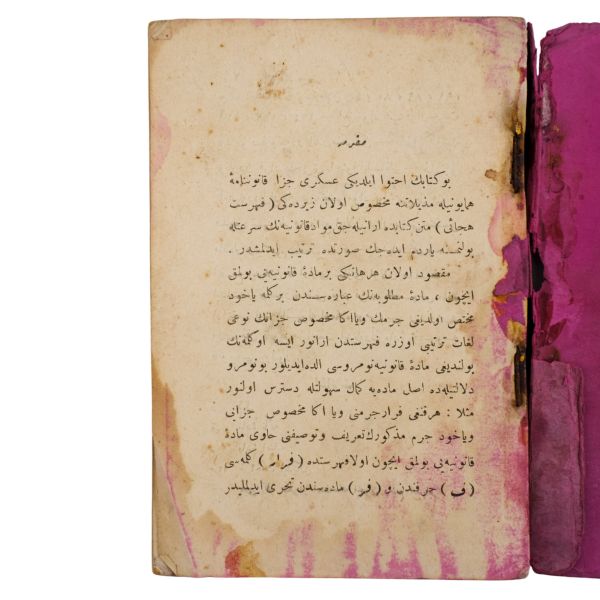 مقدمه
بو كتابك احتوا ایلدیكی عسكری جزا قانوننامهٔ
همایونیله مذیلاتنه مخصوص اولان زیرده‌كی ( فهرست
هجائی ) متن كتابده ارانیله‌جق مواد قانونیه‌نك سرعتله
بولنمسنه یاردم ایده‌جك صورتده ترتیب ایدلمشدر .
مقصود اولان هرهانكی بر مادهٔ قانونیه‌یی بولمق
ایچون ، مادهٔ مطلوبه‌نك عباره‌سندن بر كلمه یاخود
مختص اولدیغی جرمك ویا اكا مخصوص جزانك نوعی
لغات ترتیبی اوزره فهرستدن ارانور ایسه او كلمه‌نك
بولندیغی مادهٔ قانونیه نومروسی الده ایدیلور بو نومرو
دلالتیله‌ده اصل ماده‌یه كمال سهولتله دسترس اولنور
مثلا : هرقنغی فرار جرمنی ویا اكا مخصوص جزایی
ویاخود جرم مذكورك تعریف وتوصیفنی حاوی مادهٔ
قانونیه‌یی بولمق ایچون اولا فهرستده ( فرار ) كلمه‌سی
( ف ) حرفندن و ( فر ) ماده‌سندن تحری ایدلملیدر